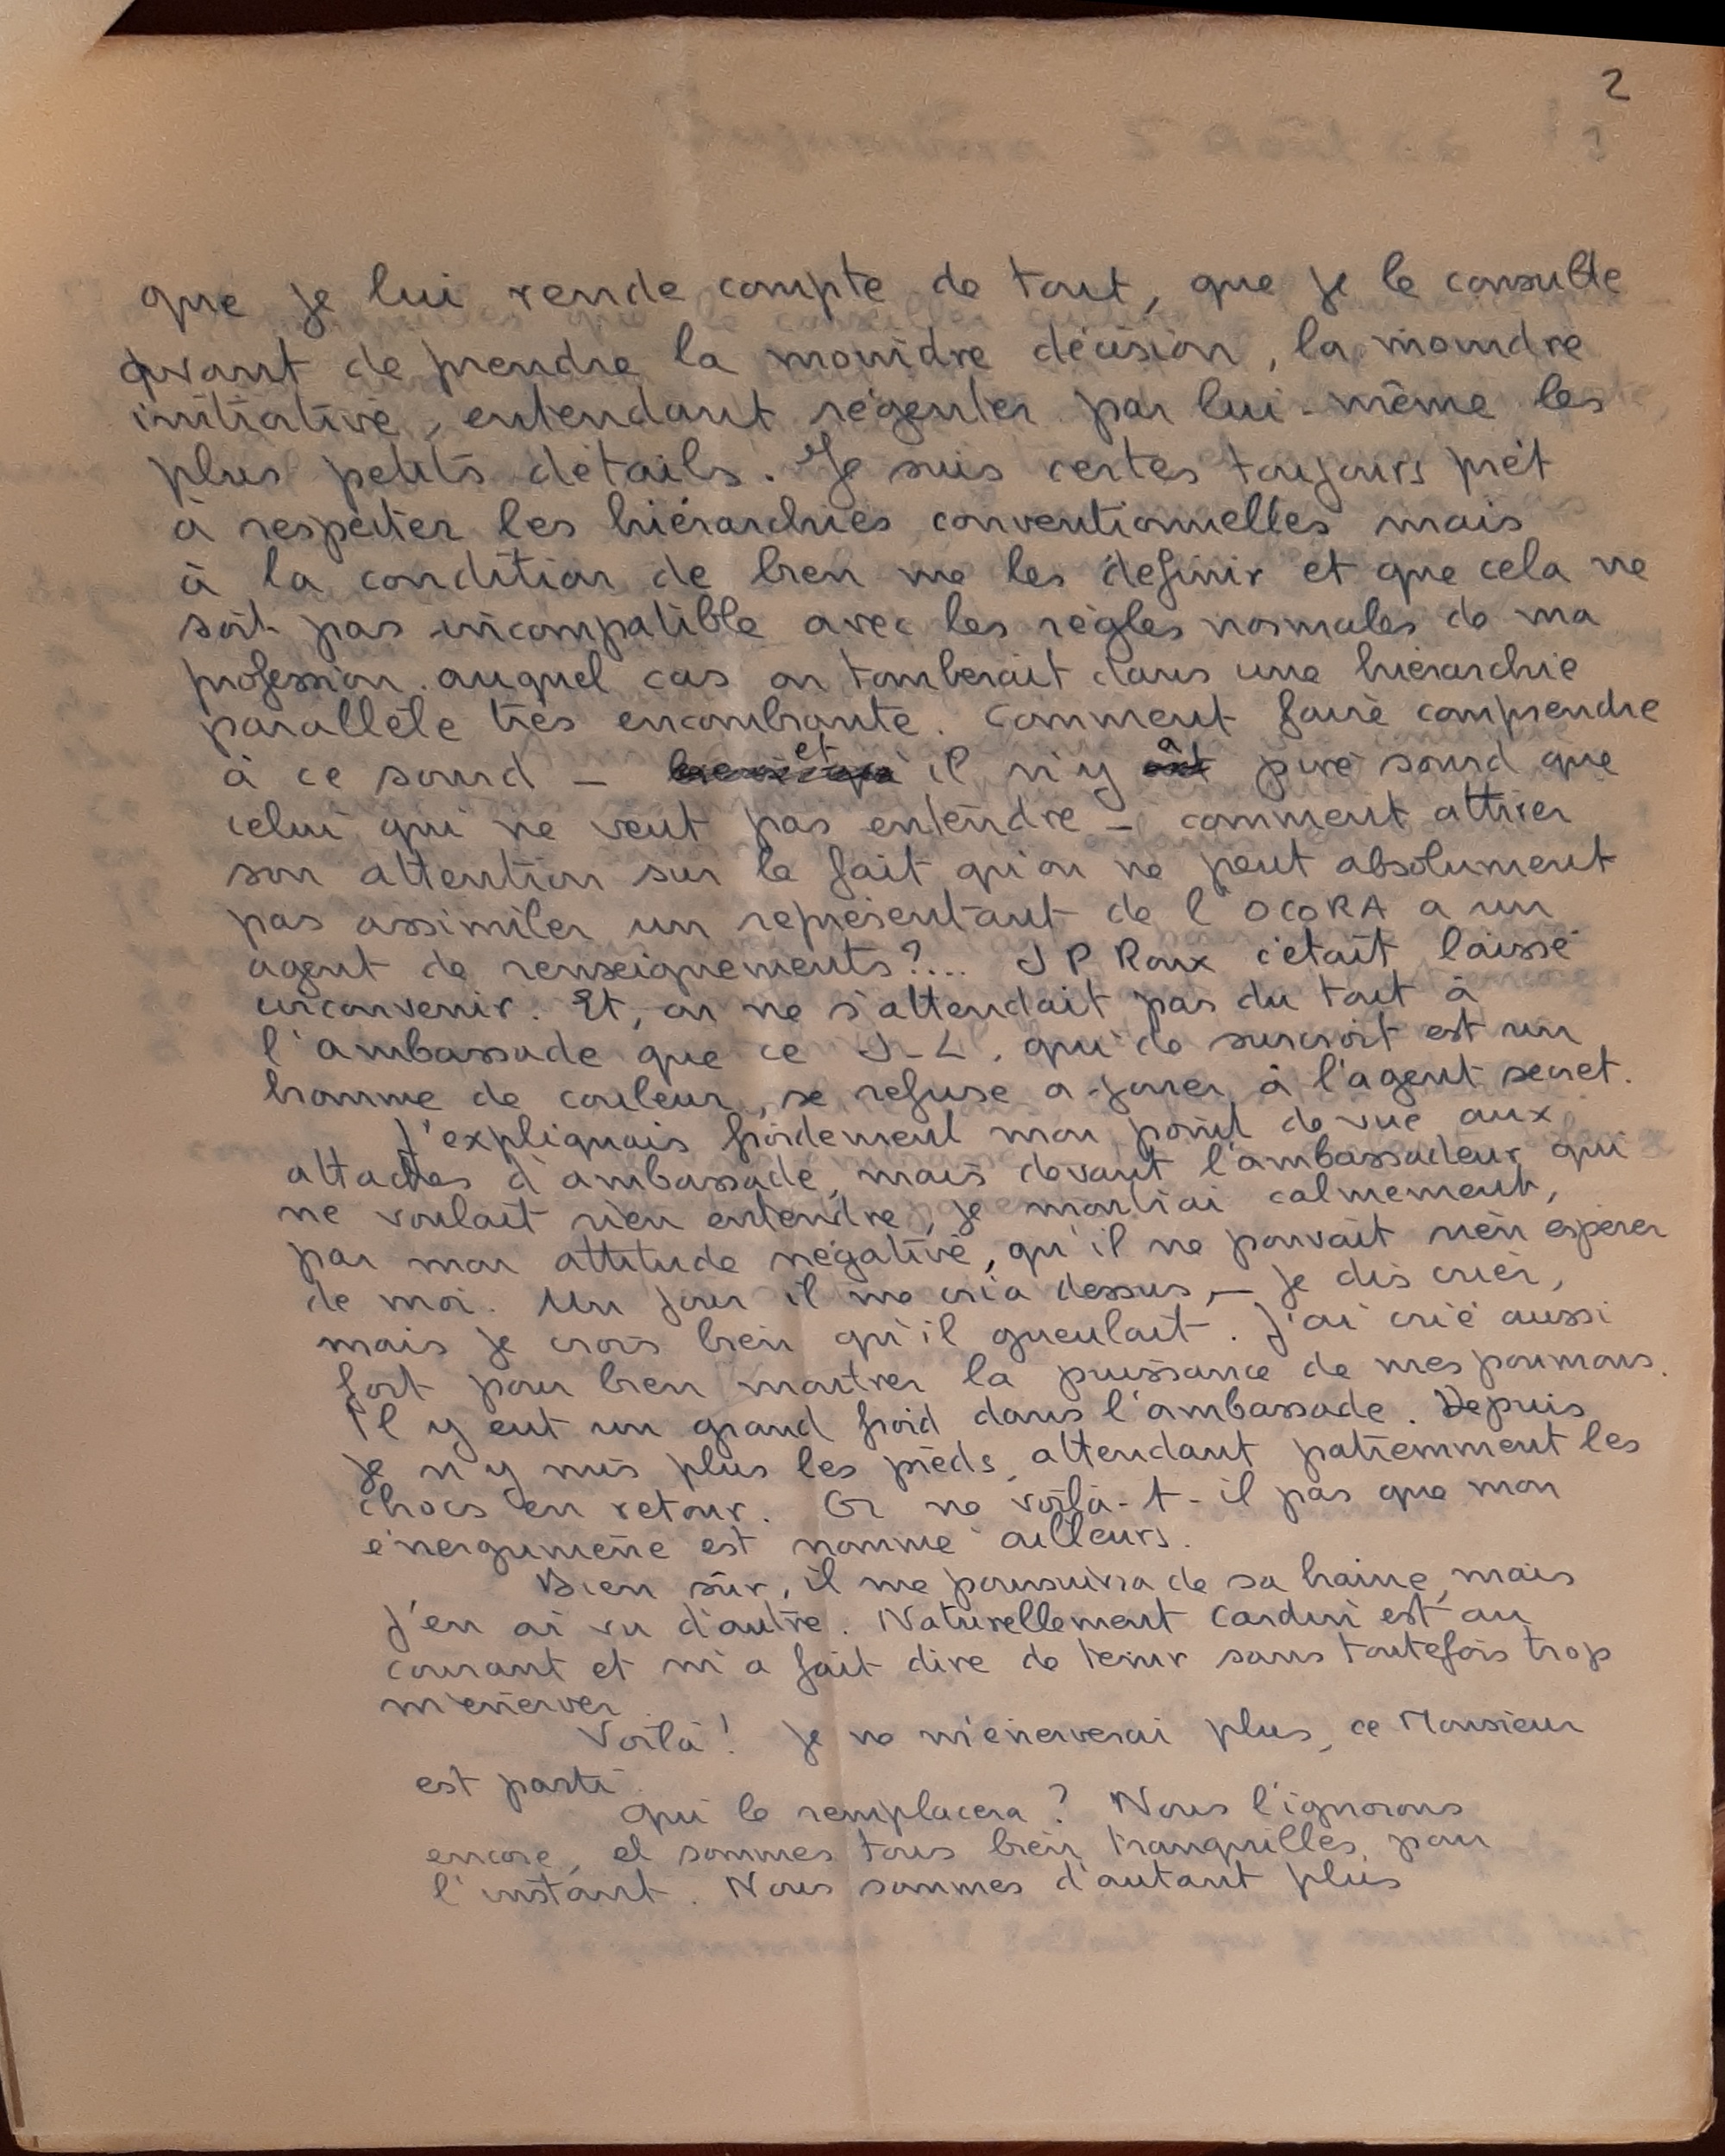 2
que je lui rende compte de tout, que je le consulte
avant de prendre la moindre décision, la moindre
initiative, entendant régenter par lui-même les
plus petits détails. Je suis certes toujours prêt
à respecter les hiérarchies conventionnelles mais
à la condition de bien me les définir et que cela ne
soit pas incompatible avec les règles normales de ma
profession. auquel cas on tomberait dans une hiérarchie
parallèle très encombrante. Comment faire comprendre
à ce sourd - et il n'y a pire sourd que
celui qui ne veut pas entendre - comment attirer
son attention sur le fait qu'on ne peut absolument
pas assimiler un représentant de l'OCORA a un
agent de renseignements?... J P Roux c'était laissé
circonvenir. Et, on ne s'attendait pas du tout à
l'ambassade que ce J-L. qui de surcroit est un
homme de couleur, se refuse a jouer à l'agent secret.
J'expliquais froidement mon point de vue aux
attachés d'ambassade, mais devant l'ambassadeur qui
ne voulait rien entendre, je montrai calmement,
par mon attitude négative, qu'il ne pouvait rien espérer
de moi. Un jour il me cria dessus, - je dis crier,
mais je crois bien qu'il gueulait. J'ai crié aussi
fort pour bien montrer la puissance de mes poumons.
Il y eut un grand froid dans l'ambassade. Depuis
je n'y mis plus les pieds, attendant patiemment les
chocs en retour. Or ne voilà-t-il pas que mon
énergumène est nommé ailleurs.
Bien sûr, il me poursuivra de sa haine, mais
j'en ai vu d'autre. Naturellement Cardin est au
courant et m'a fait dire de tenir sans toutefois trop
m'énerver.
Voilà! Je ne m'énerverai plus, ce Monsieur
est parti.
Qui le remplacera? Nous l'ignorons
encore, et sommes tous bien tranquilles, pour
l'instant. Nous sommes d'autant plus